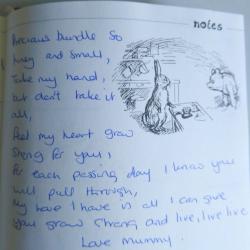 notes
Precious bundle so
tiny and small,
Take my hand,
but don't take it
all,
Feel my heart grow
Strong for you,
For each passing day I know you
will pull through,
My love I have is all I can give
you grow strong and live, live live
Love Mummy.